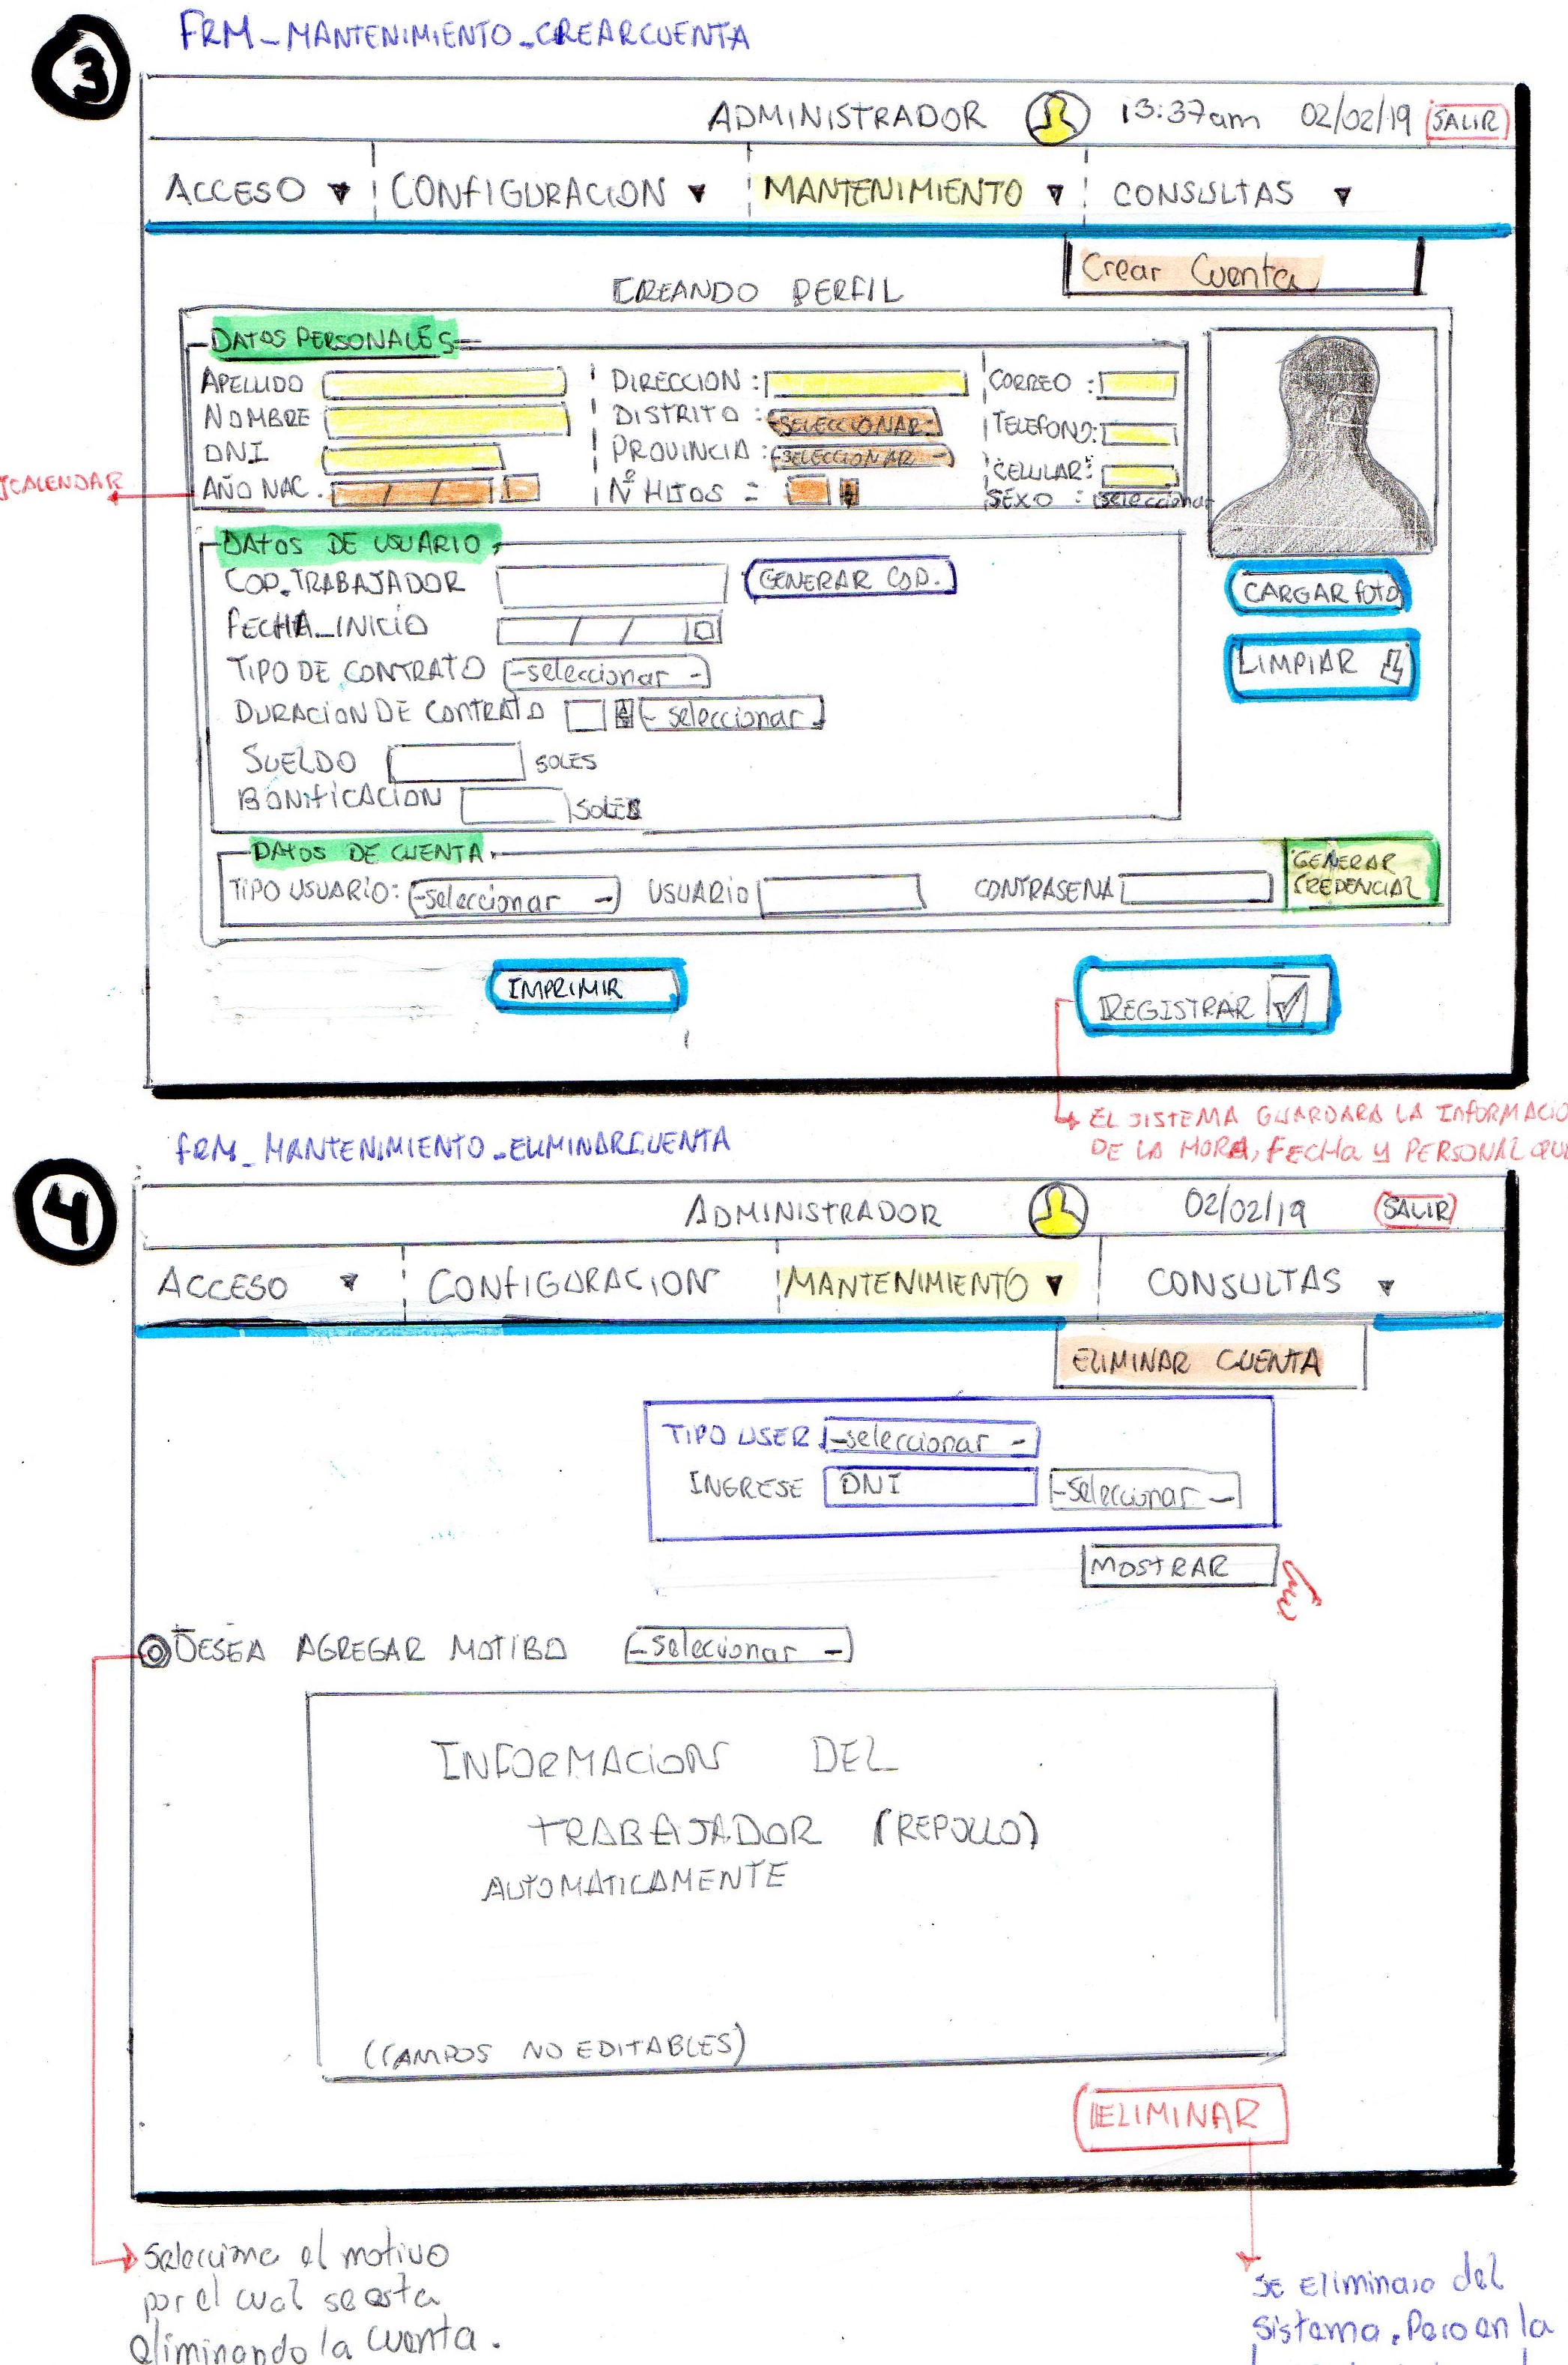 3
FRM_MANTENIMIENTO_CREARCUENTA
ADMINISTRADOR 13:37am 02/02/19 SALIR
ACCESO ▼ CONFIGURACION ▼ MANTENIMIENTO ▼ CONSULTAS ▼
Crear Cuenta
CREANDO PERFIL
DATOS PERSONALES
APELLIDO DIRECCION : CORREO :
NOMBRE DISTRITO : -SELECCIONAR- TELEFONO:
DNI PROVINCIA : -SELECCIONAR- CELULAR:
JCALENDAR AÑO NAC. / / Nº HIJOS = SEXO : seleccionar
DATOS DE USUARIO
COD.TRABAJADOR GENERAR COD.
FECHA_INICIO / /
TIPO DE CONTRATO -seleccionar -
DURACION DE CONTRATO - seleccionar -
SUELDO SOLES
BONIFICACION SOLES
CARGAR FOTO
LIMPIAR
DATOS DE CUENTA
TIPO USUARIO: -seleccionar - USUARIO CONTRASENA GENERAR CREDENCIAL
IMPRIMIR REGISTRAR
EL SISTEMA GUARDARA LA INFORMACIO
DE LA HORA, FECHA Y PERSONAL QUE
4
FRM_MANTENIMIENTO_ELIMINARCUENTA
ADMINISTRADOR 02/02/19 SALIR
ACCESO ▼ CONFIGURACION MANTENIMIENTO ▼ CONSULTAS ▼
ELIMINAR CUENTA
TIPO USER -seleccionar -
INGRESE DNI -seleccionar -
MOSTRAR
DESEA AGREGAR MOTIBO -selecionar -
INFORMACION DEL
TRABAJADOR (REPOLLO)
AUTOMATICAMENTE
(CAMPOS NO EDITABLES)
ELIMINAR
Seleccione el motivo
por el cual se esta
eliminando la cuenta.
SE Eliminaro del
sistema. Pero en la